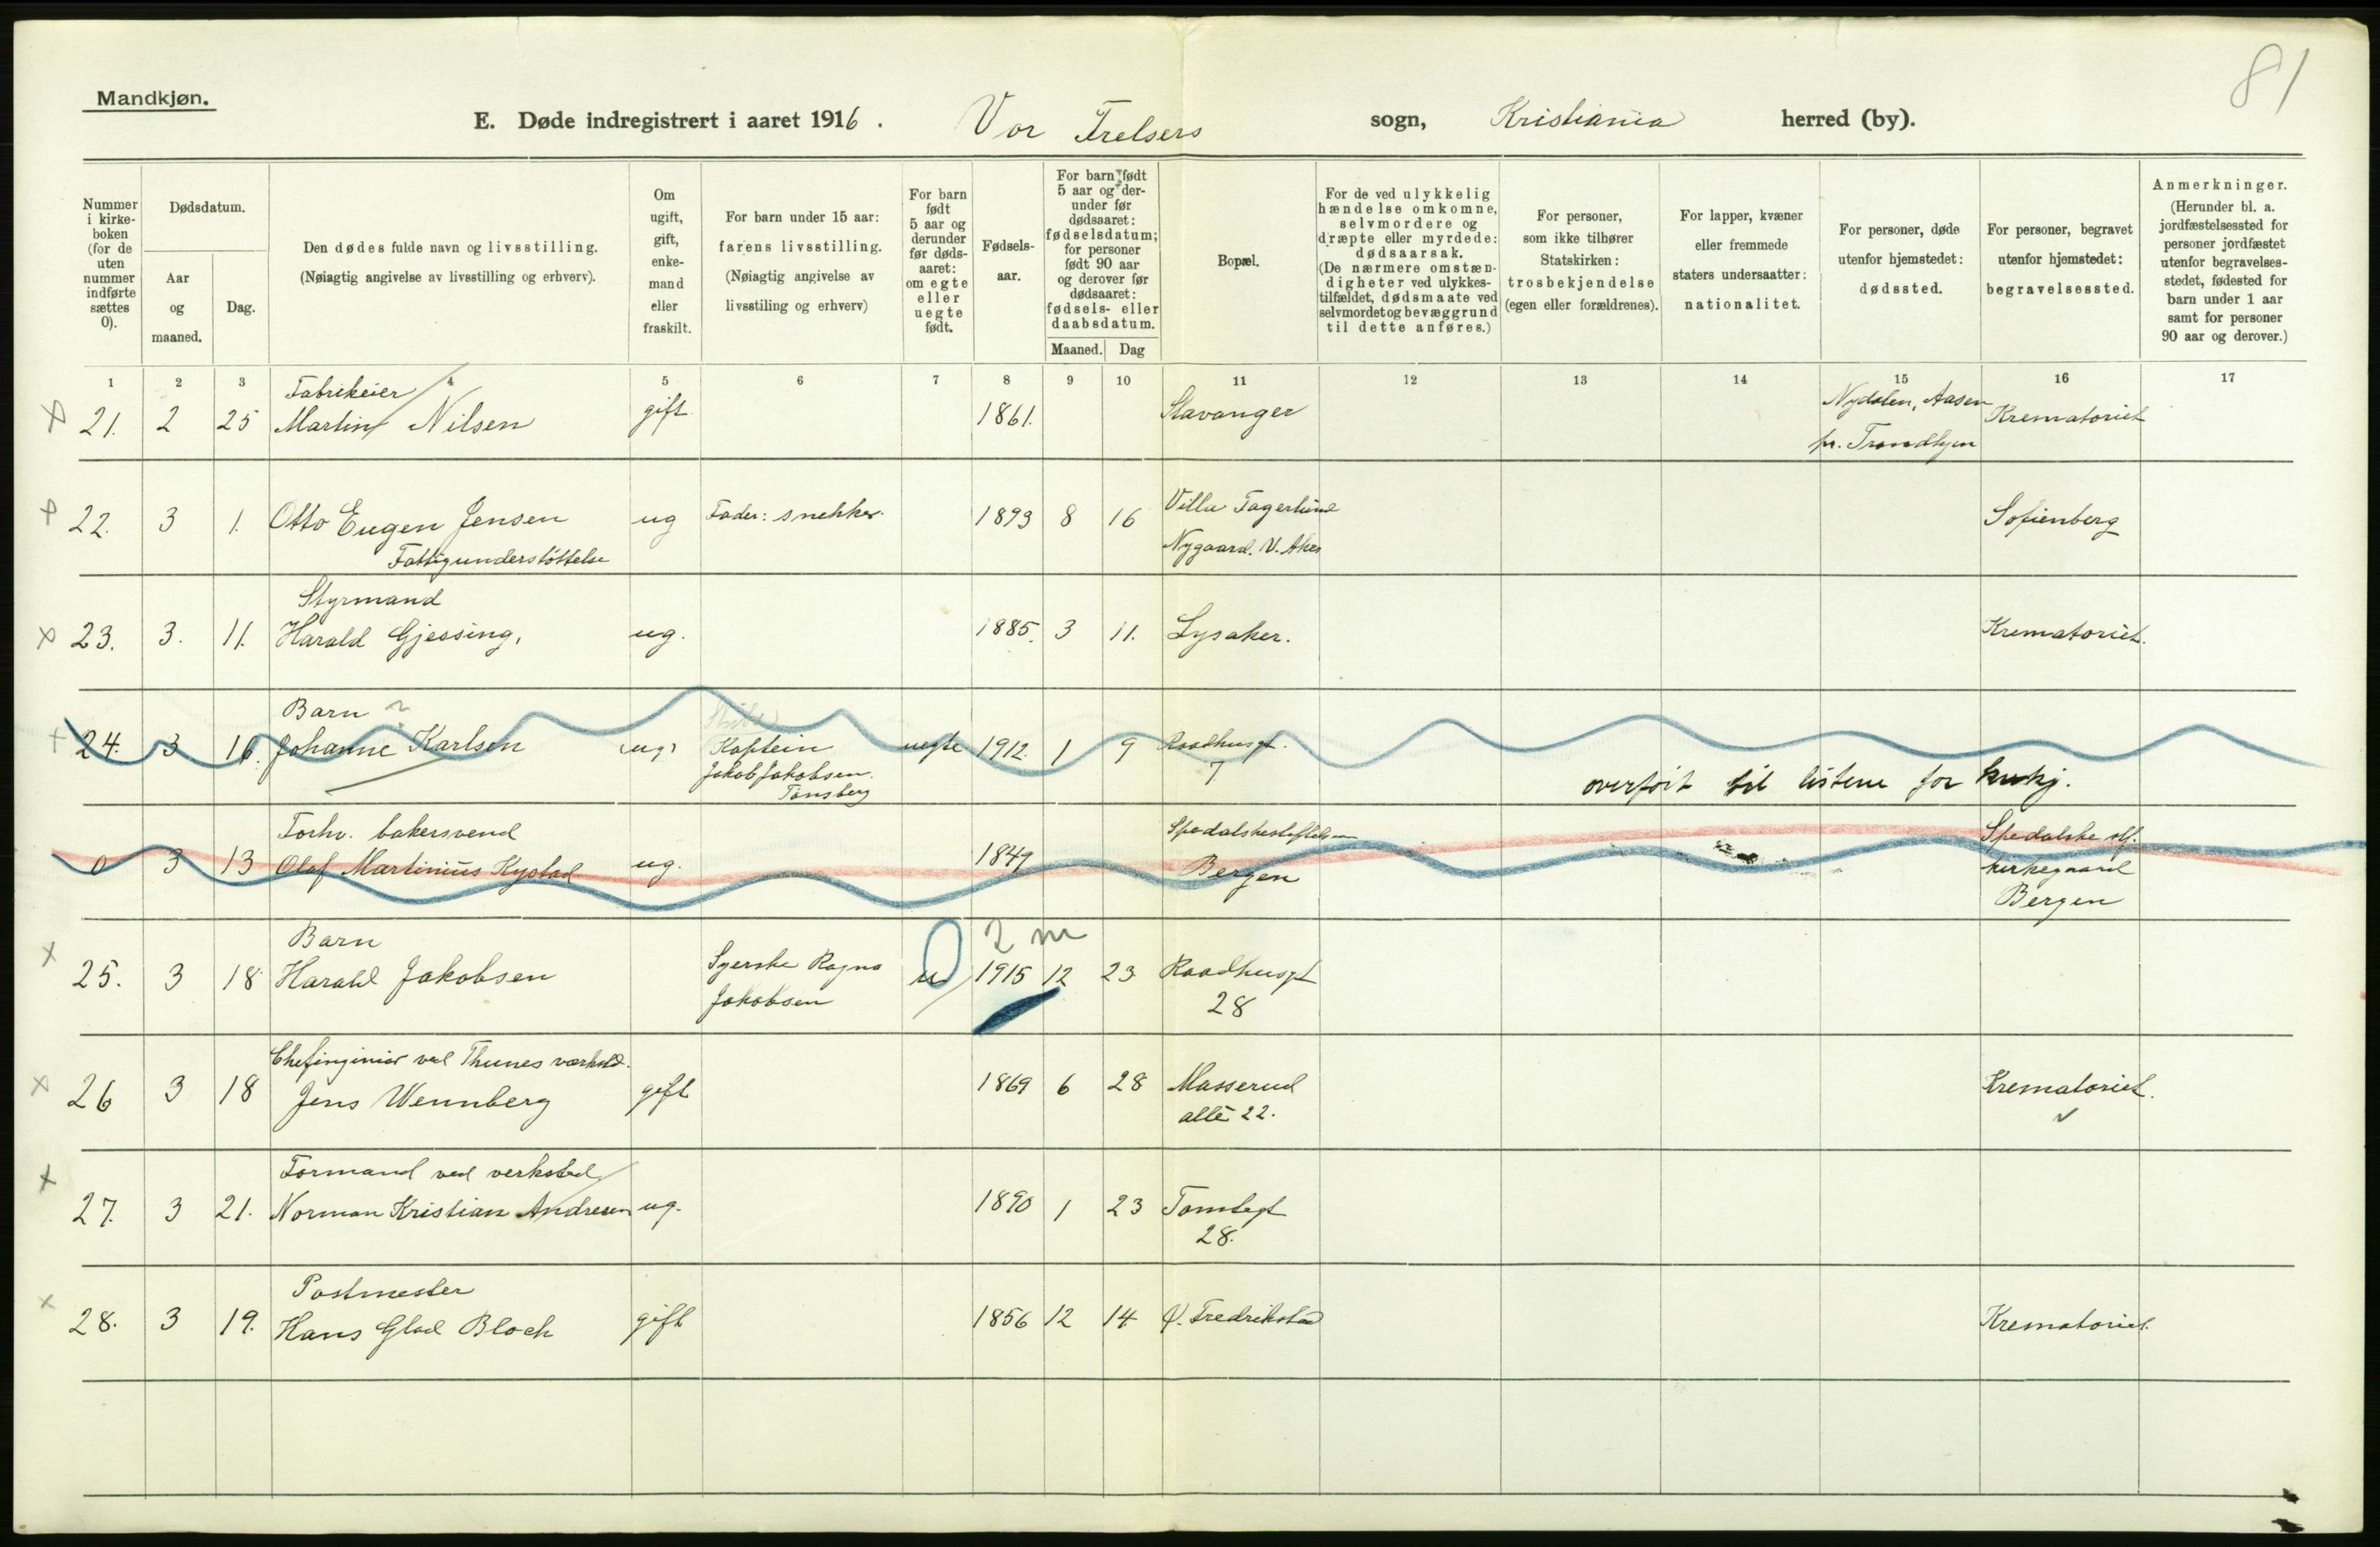 81
Mandkjøn.
E. Døde indregistrert i aaret 1916. Vor Frelsers sogn, Kristiania herred (by).
Nummer i kirke-boken (for de uten nummer indførte sættes 0).
Dødsdatum.
Aar og maaned.
Dag.
Den dødes fulde navn og livsstilling. (Nøiagtig angivelse av livsstilling og erhverv).
Om ugift, gift, enke-mand eller fraskilt.
For barn under 15 aar: farens livsstilling. (Nøiagtig angivelse av livsstiling og erhverv)
For barn født 5 aar og derunder før døds-aaret: om egte eller uegte født.
Fødsels-aar.
For barn født 5 aar og der-under før dødsaaret: fødselsdatum; for personer født 90 aar og derover før dødsaaret: fødsels- eller daabsdatum.
Maaned. Dag
Bopæl.
For de ved ulykkelig hændelse omkomne, selvmordere og dræpte eller myrdede: dødsaarsak. (De nærmere omstæn-digheter ved ulykkes-tilfældet, dødsmaate ved selvmordet og bevæggrund til dette anføres.)
For personer, som ikke tilhører Statskirken: trosbekjendelse (egen eller forældrenes).
For lapper, kvæner eller fremmede staters undersaatter: nationalitet.
For personer, døde utenfor hjemstedet: dødssted.
For personer, begravet utenfor hjemstedet: begravelsessted.
Anmerkninger. (Herunder bl. a. jordfæstelsessted for personer jordfæstet utenfor begravelses-stedet, fødested for barn under 1 aar samt for personer 90 aar og derover.)
1 2 3 4 5 6 7 8 9 10 11 12 13 14 15 16 17
Fabrikeier
21. 2 25 Martin Nilsen gift 1861. Stavanger Nydalen, Aasen Krematoriet
pr. Trondhjem
22. 3 1. Otto Eugen Jensen ug Fader: snekker. 1893 8 16 Villa Fagerlund Sofienberg
Fattigunderstöttelse Nygaard. V. Aker
Styrmand
23. 3. 11. Harald Gjessing, ug. 1885. 3 11. Lysaker. Krematoriet.
Barn ?
24. 3 16. Johanne Karlsen ug. Kaptein uegte 1912. 1 9 Raadhusgt.
Jakob Jakobsen. 7
Tönsberg overfört til listene for kvkj.
Forhv. bakersvend Spedalske stf.
0 3 13 Olaf Martinius Kystad ug. 1849 Bergen kirkegaard
Bergen
Barn 2 m
25. 3 18. Harald Jakobsen Syerske Ragna u 1915 12 23 Raadhusgt
Jakobsen 28
Chefinginiör ved Thunes værksted.
26 3 18 Jens Wennberg gift 1869 6 28 Masserud Krematoriet.
allè 22.
Formand ved verksted
27. 3 21. Norman Kristian Andresen ug. 1890 1 23 Tomtegt
28.
Postmester
28. 3 19. Hans Glad Bloch gift 1856 12 14 V. Fredrikstad Krematoriet.